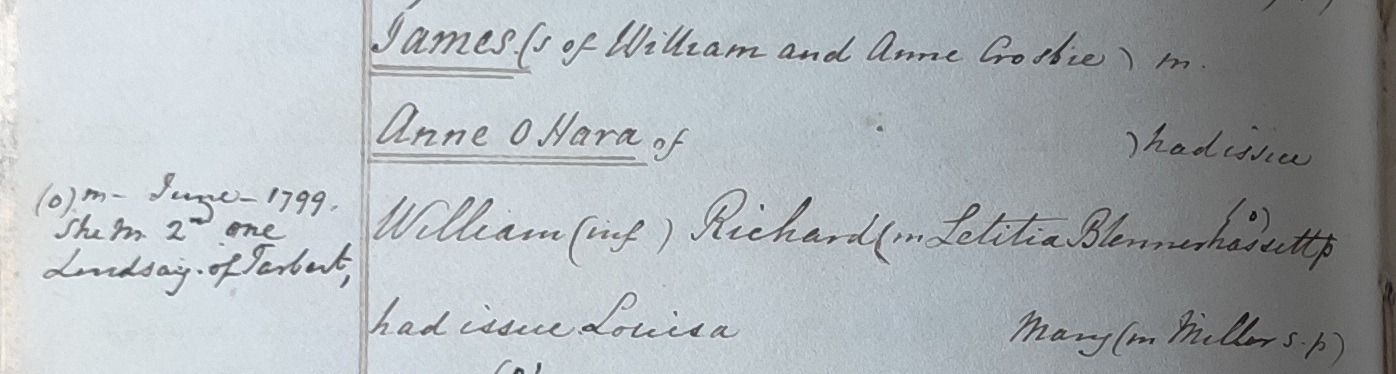 James (s of William and Anne Crosbie) m.
Anne O Hara of ) had issue
(o) m - June - 1799.
She m 2nd one
Lindsay. of Tarbert,
William (inf ) Richard (m Letitia Blennerhassett (o)
had issue Louisa Mary (m Miller s.p)